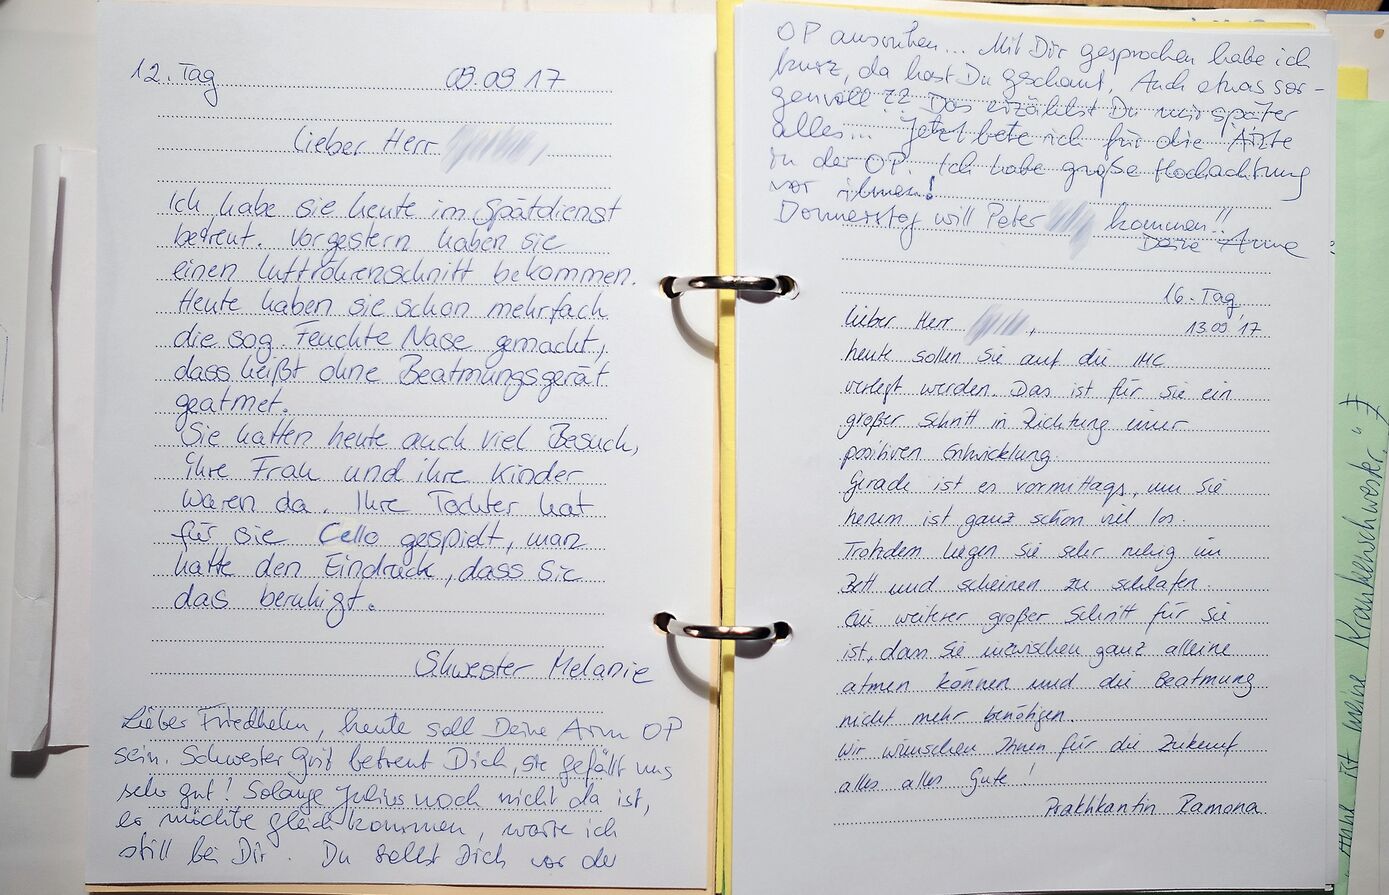 12. Tag 09.09.17
Lieber Herr
Ich habe sie heute im Spätdienst
betreut. Vorgestern haben sie
einen Luftröhrenschnitt bekommen.
Heute haben sie schon mehrfach
die sog. Feuchte Nase gemacht,
dass heißt ohne Beatmungsgerät
geatmet.
Sie hatten heute auch viel Besuch,
ihre Frau und ihre Kinder
waren da. Ihre Tochter hat
für sie Cello gespielt, man
hatte den Eindruck, dass Sie
das beruhigt.
Schwester Melanie
Lieber Friedhelm, heute soll Deine Arm OP
sein. Schwester Grit betreut Dich, sie gefällt uns
sehr gut! Solange Julius noch nicht da ist,
er möchte gleich kommen, warte ich
still bei Dir. Du sollst Dich vor der
OP ausruhen... Mit Dir gesprochen habe ich
kurz, da hast Du geschaut. Auch etwas sor-
genvoll?? Das erzählst Du mir später
alles... Jetzt bete ich für die Ärzte
in der OP. Ich habe große Hochachtung
vor ihnen!
Donnerstag will Peter kommen!!
Deine Anne
16. Tag
Lieber Herr , 13.09.17
heute sollen Sie auf die IMC
verlegt werden. Das ist für Sie ein
großer Schritt in Richtung einer
positiven Entwicklung.
Gerade ist es vormittags, um Sie
herum ist ganz schön viel los.
Trotzdem liegen Sie sehr ruhig im
Bett und scheinen zu schlafen.
Ein weiterer großer Schritt für Sie
ist, dass Sie inzwischen ganz alleine
atmen können und die Beatmung
nicht mehr benötigen.
Wir wünschen Ihnen für die Zukunft
alles alles Gute!
Praktikantin Ramona
ist meine Krankenschwester."